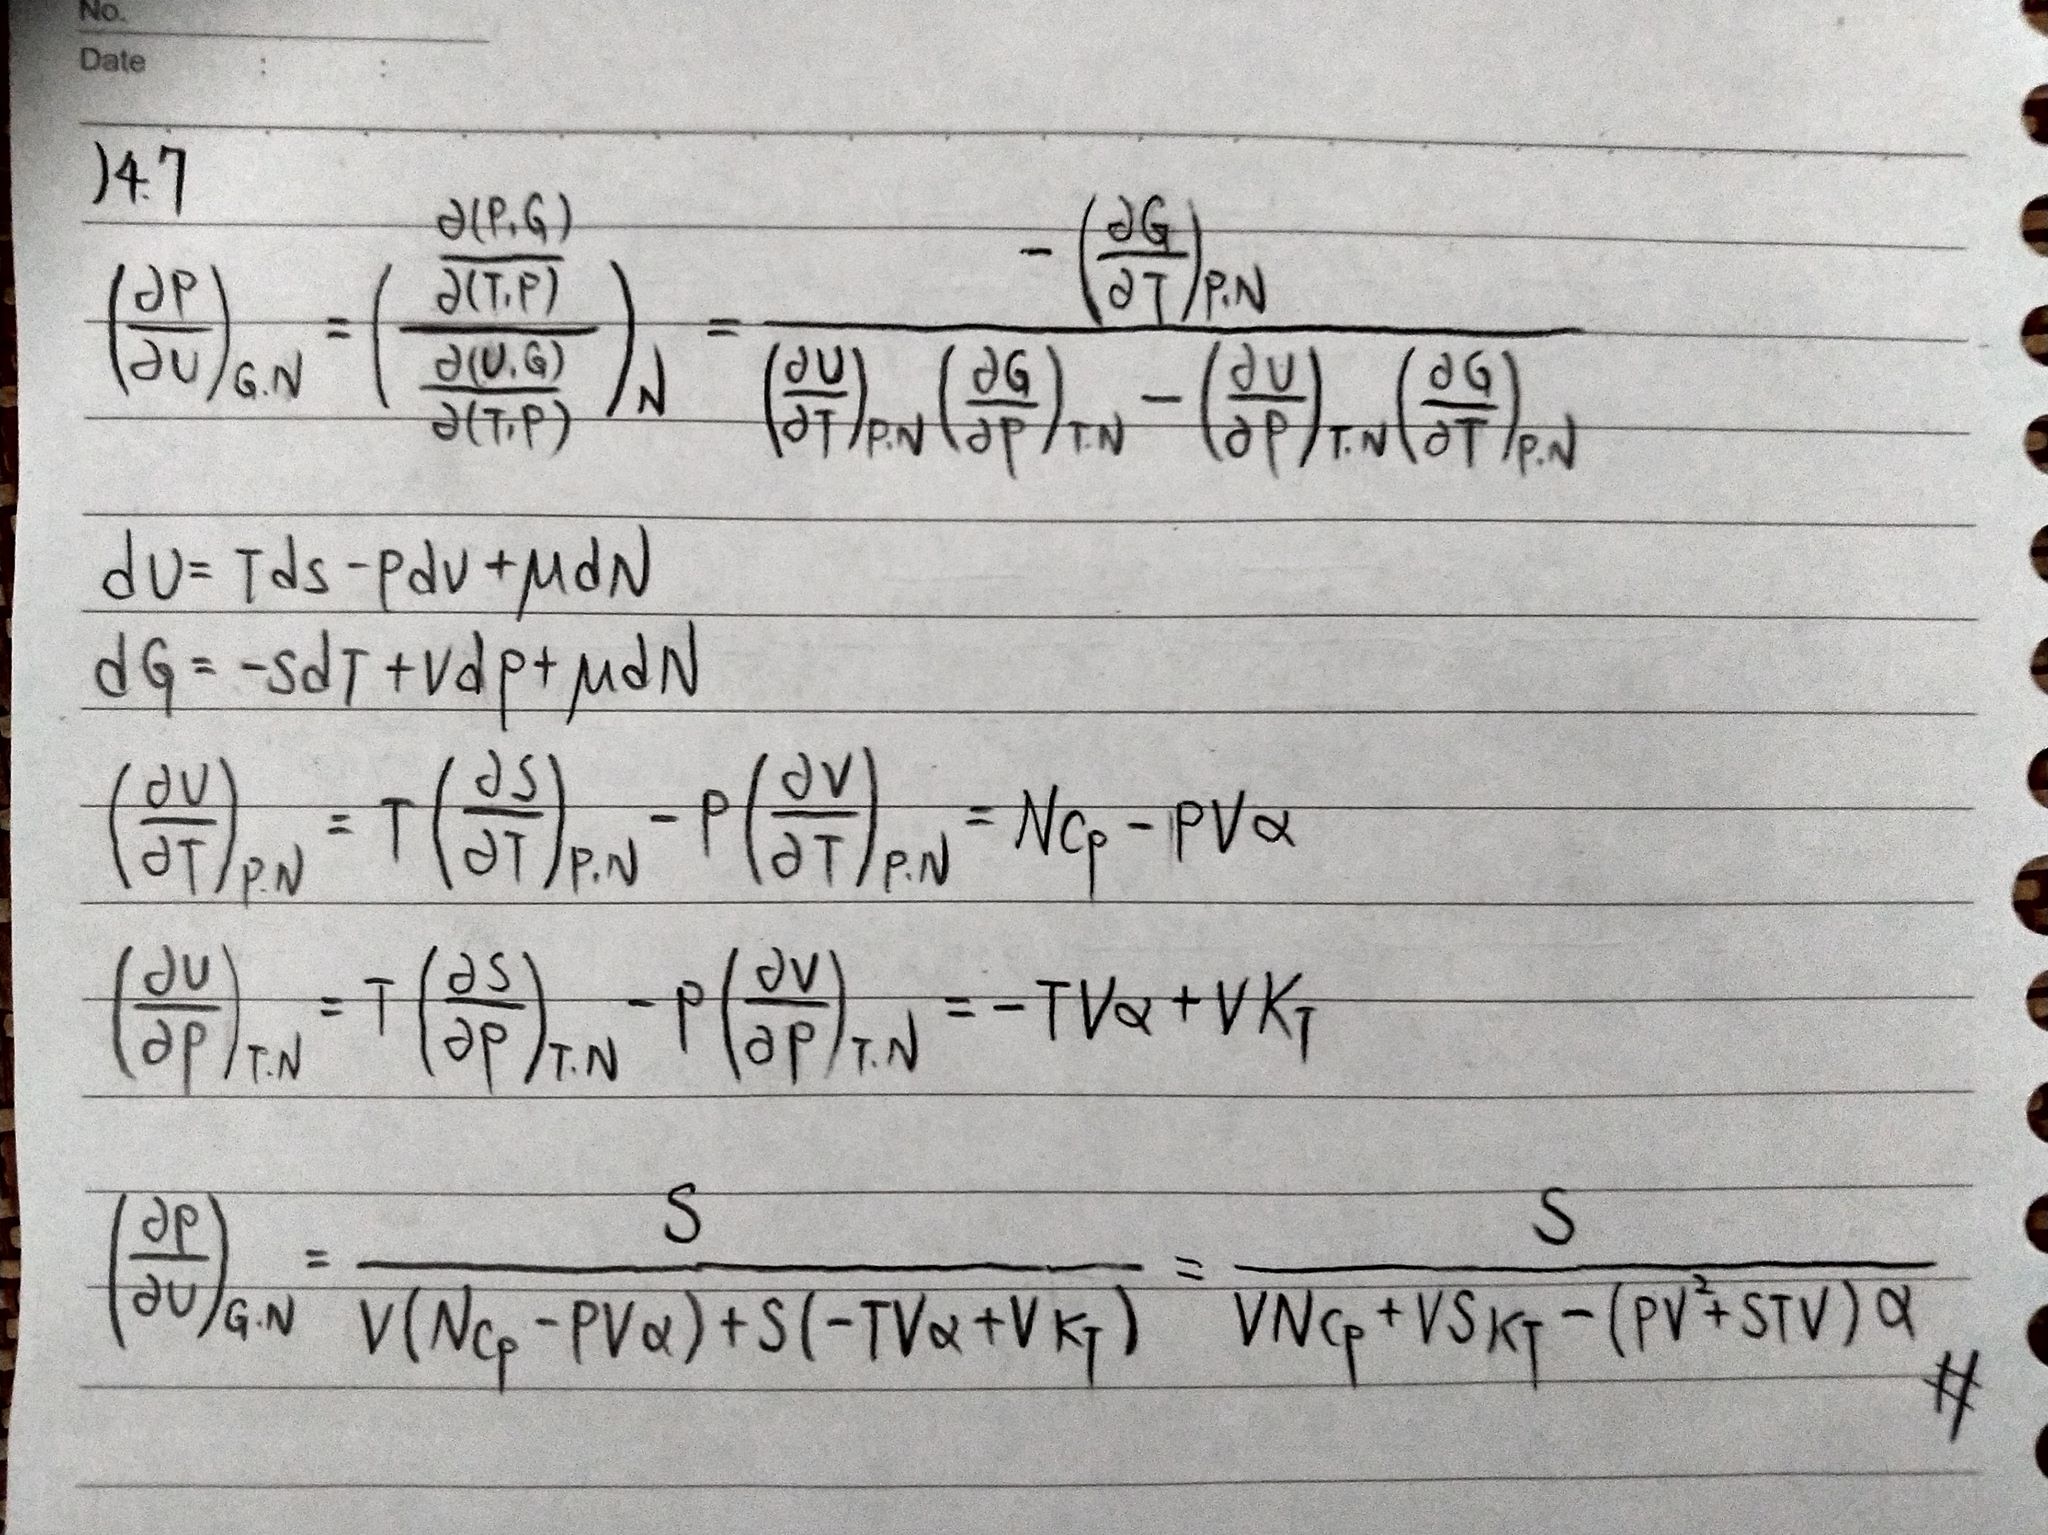 No.
Date : :
)4.7
(∂P/∂U)_{G.N} = ( (∂(P,G)/∂(T,P)) / (∂(U,G)/∂(T,P)) )_N = -(∂G/∂T)_{P.N} / ( (∂U/∂T)_{P.N} (∂G/∂P)_{T.N} - (∂U/∂P)_{T.N} (∂G/∂T)_{P.N} )
dU = Tds - Pdv + μdN
dG = -SdT + Vdp + μdN
(∂U/∂T)_{P.N} = T(∂S/∂T)_{P.N} - P(∂V/∂T)_{P.N} = Nc_p - PVα
(∂U/∂P)_{T.N} = T(∂S/∂P)_{T.N} - P(∂V/∂P)_{T.N} = -TVα + VK_T
(∂P/∂U)_{G.N} = S / ( V(Nc_p - PVα) + S(-TVα + VK_T) ) = S / ( VNc_p + VSK_T - (PV² + STV)α ) #